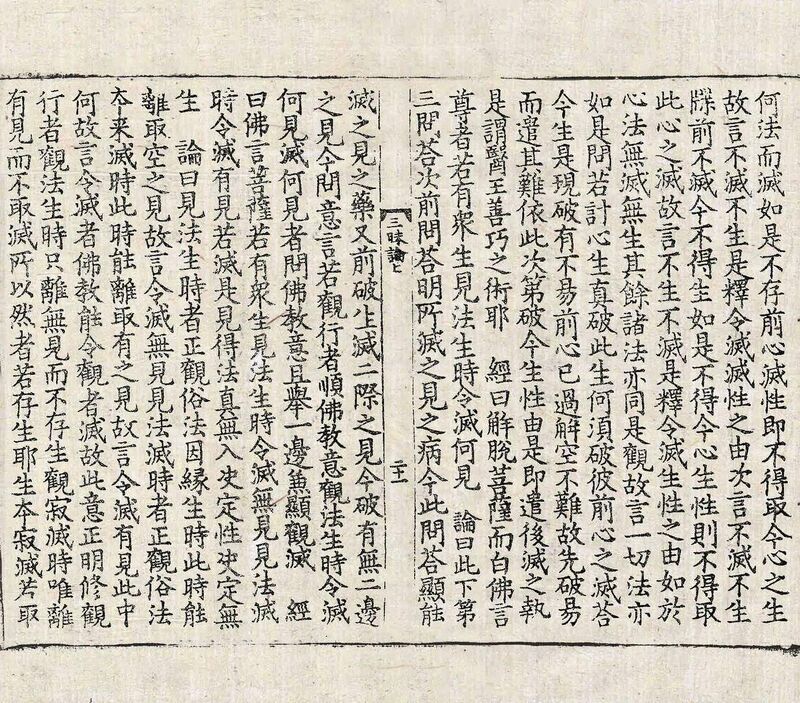 何法而滅如是不存前心滅性即不得取今心之生
故言不滅不生是釋令滅滅性之由次言不滅不生
牒前不滅今不得生如是不得今心生性則不得取
此心之滅故言不生不滅是釋令滅生性之由如於
心法無滅無生其餘諸法亦同是觀故言一切法亦
如是問若計心生真破此生何湏破彼前心之滅荅
今生是現破有不易前心已過解空不難故先破易
而遣其難依此次第破今生性由是即遣後滅之執
是謂醫王善巧之術耶　經曰解脫菩薩而白佛言
尊者若有衆生見法生時令滅何見　論曰此下第
三問荅次前問荅明所滅之見之病今此問荅顯能
三昧論上
二十一
滅之見之藥又前破生滅二際之見今破有無二邊
之見今問意言若觀行者順佛教意觀法生時令滅
何見滅何見者問佛教意且舉一邊兼顯觀滅　經
曰佛言菩薩若有衆生見法生時令滅無見見法滅
時令滅有見若滅是見得法真無入决定性决定無
生　論曰見法生時者正觀俗法因緣生時此時能
離取空之見故言令滅無見見法滅時者正觀俗法
本来滅時此時能離取有之見故言令滅有見此中
何故言令滅者佛教能令觀者滅故此意正明修觀
行者觀法生時只離無見而不存生觀寂滅時唯離
有見而不取滅所以然者若存生耶生本寂滅若取